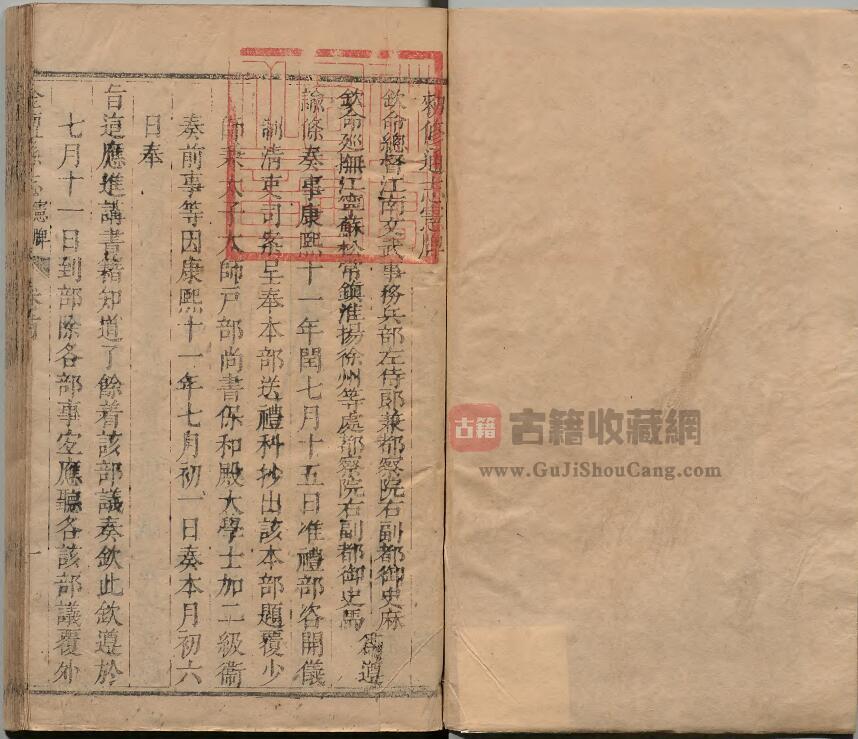 勑修通志憲牌
欽命總督江南文武事務兵部左侍郎兼都察院右副都御史麻
欽命廵撫江寧蘇松常鎮淮揚徐州等處都察院右副都御史馬 為遵
諭條奏事康熙十一年閏七月十五日准禮部咨開儀
制清吏司案呈奉本部送禮科抄出該本部題覆少
師兼太子太師戸部尚書保和殿大學士加二級衛
奏前事等因康熙十一年七月初一日奏本月初六
日奉
旨這應進講書籍知道了餘着該部議奏欽此欽遵於
七月十一日到部除各部事宜應聽各該部議覆外
金壇縣志 憲牌 卷首 一
古籍 古籍收藏網
www.GuJiShouCang.com